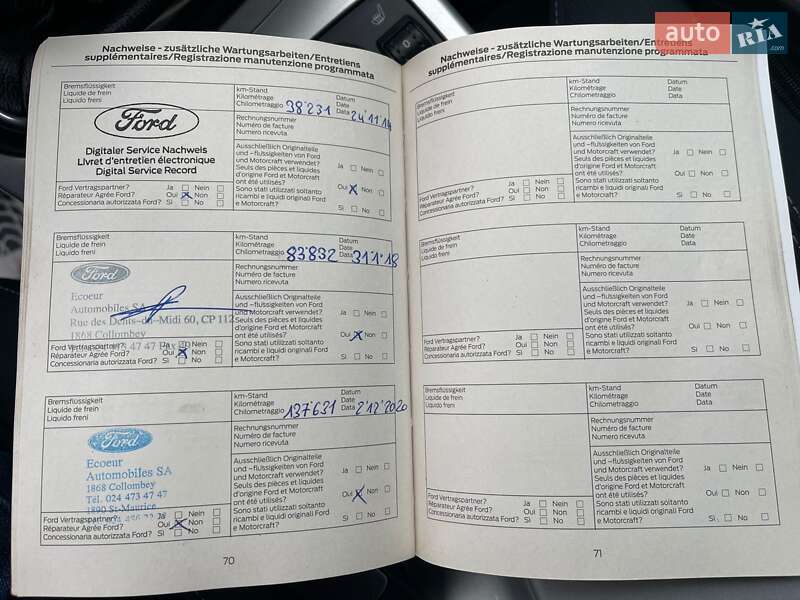 auto RIA.com
Nachweise - zusätzliche Wartungsarbeiten/Entretiens
supplémentaires/Registrazione manutenzione programmata
Bremsflüssigkeit
Liquide de frein
Liquido freni
km-Stand
Kilométrage
Chilometraggio 38'231
Datum
Date
Data 24'11'14
Ford
Digitaler Service Nachweis
Livret d'entretien électronique
Digital Service Record
Rechnungsnummer
Numéro de facture
Numero ricevuta
Ausschließlich Originalteile
und -flüssigkeiten von Ford
und Motorcraft verwendet? Ja Nein
Seuls des pièces et liquides
d'origine Ford et Motorcraft
ont été utilisés? Oui X Non
Sono stati utilizzati soltanto
ricambi e liquidi originali Ford
e Motorcraft? Sì No
Ford Vertragspartner? Ja Nein
Réparateur Agrée Ford? Oui X Non
Concessionaria autorizzata Ford? Sì No
Bremsflüssigkeit
Liquide de frein
Liquido freni
km-Stand
Kilométrage
Chilometraggio 83'832
Datum
Date
Data 31'1'18
Ford
Ecoeur
Automobiles SA
Rue des Dents-du-Midi 60, CP 112
1868 Collombey
Rechnungsnummer
Numéro de facture
Numero ricevuta
Ausschließlich Originalteile
und -flüssigkeiten von Ford
und Motorcraft verwendet? Ja Nein
Seuls des pièces et liquides
d'origine Ford et Motorcraft
ont été utilisés? Oui X Non
Sono stati utilizzati soltanto
ricambi e liquidi originali Ford
e Motorcraft? Sì No
Ford Vertragspartner? Ja Nein
Réparateur Agrée Ford? Oui X Non
Concessionaria autorizzata Ford? Sì No
Bremsflüssigkeit
Liquide de frein
Liquido freni
km-Stand
Kilométrage
Chilometraggio 137'631
Datum
Date
Data 2'12'2020
Ford
Ecoeur
Automobiles SA
1868 Collombey
Tél. 024 473 47 47
1890 St-Maurice
Rechnungsnummer
Numéro de facture
Numero ricevuta
Ausschließlich Originalteile
und -flüssigkeiten von Ford
und Motorcraft verwendet? Ja Nein
Seuls des pièces et liquides
d'origine Ford et Motorcraft
ont été utilisés? Oui X Non
Sono stati utilizzati soltanto
ricambi e liquidi originali Ford
e Motorcraft? Sì No
Ford Vertragspartner? Ja Nein
Réparateur Agrée Ford? Oui X Non
Concessionaria autorizzata Ford? Sì No
70
Nachweise - zusätzliche Wartungsarbeiten/Entretiens
supplémentaires/Registrazione manutenzione programmata
Bremsflüssigkeit
Liquide de frein
Liquido freni
km-Stand
Kilométrage
Chilometraggio
Datum
Date
Data
Rechnungsnummer
Numéro de facture
Numero ricevuta
Ausschließlich Originalteile
und -flüssigkeiten von Ford
und Motorcraft verwendet? Ja Nein
Seuls des pièces et liquides
d'origine Ford et Motorcraft
ont été utilisés? Oui Non
Sono stati utilizzati soltanto
ricambi e liquidi originali Ford
e Motorcraft? Sì No
Ford Vertragspartner? Ja Nein
Réparateur Agrée Ford? Oui Non
Concessionaria autorizzata Ford? Sì No
Bremsflüssigkeit
Liquide de frein
Liquido freni
km-Stand
Kilométrage
Chilometraggio
Datum
Date
Data
Rechnungsnummer
Numéro de facture
Numero ricevuta
Ausschließlich Originalteile
und -flüssigkeiten von Ford
und Motorcraft verwendet? Ja Nein
Seuls des pièces et liquides
d'origine Ford et Motorcraft
ont été utilisés? Oui Non
Sono stati utilizzati soltanto
ricambi e liquidi originali Ford
e Motorcraft? Sì No
Ford Vertragspartner? Ja Nein
Réparateur Agrée Ford? Oui Non
Concessionaria autorizzata Ford? Sì No
Bremsflüssigkeit
Liquide de frein
Liquido freni
km-Stand
Kilométrage
Chilometraggio
Datum
Date
Data
Rechnungsnummer
Numéro de facture
Numero ricevuta
Ausschließlich Originalteile
und -flüssigkeiten von Ford
und Motorcraft verwendet? Ja Nein
Seuls des pièces et liquides
d'origine Ford et Motorcraft
ont été utilisés? Oui Non
Sono stati utilizzati soltanto
ricambi e liquidi originali Ford
e Motorcraft? Sì No
Ford Vertragspartner? Ja Nein
Réparateur Agrée Ford? Oui Non
Concessionaria autorizzata Ford? Sì No
71